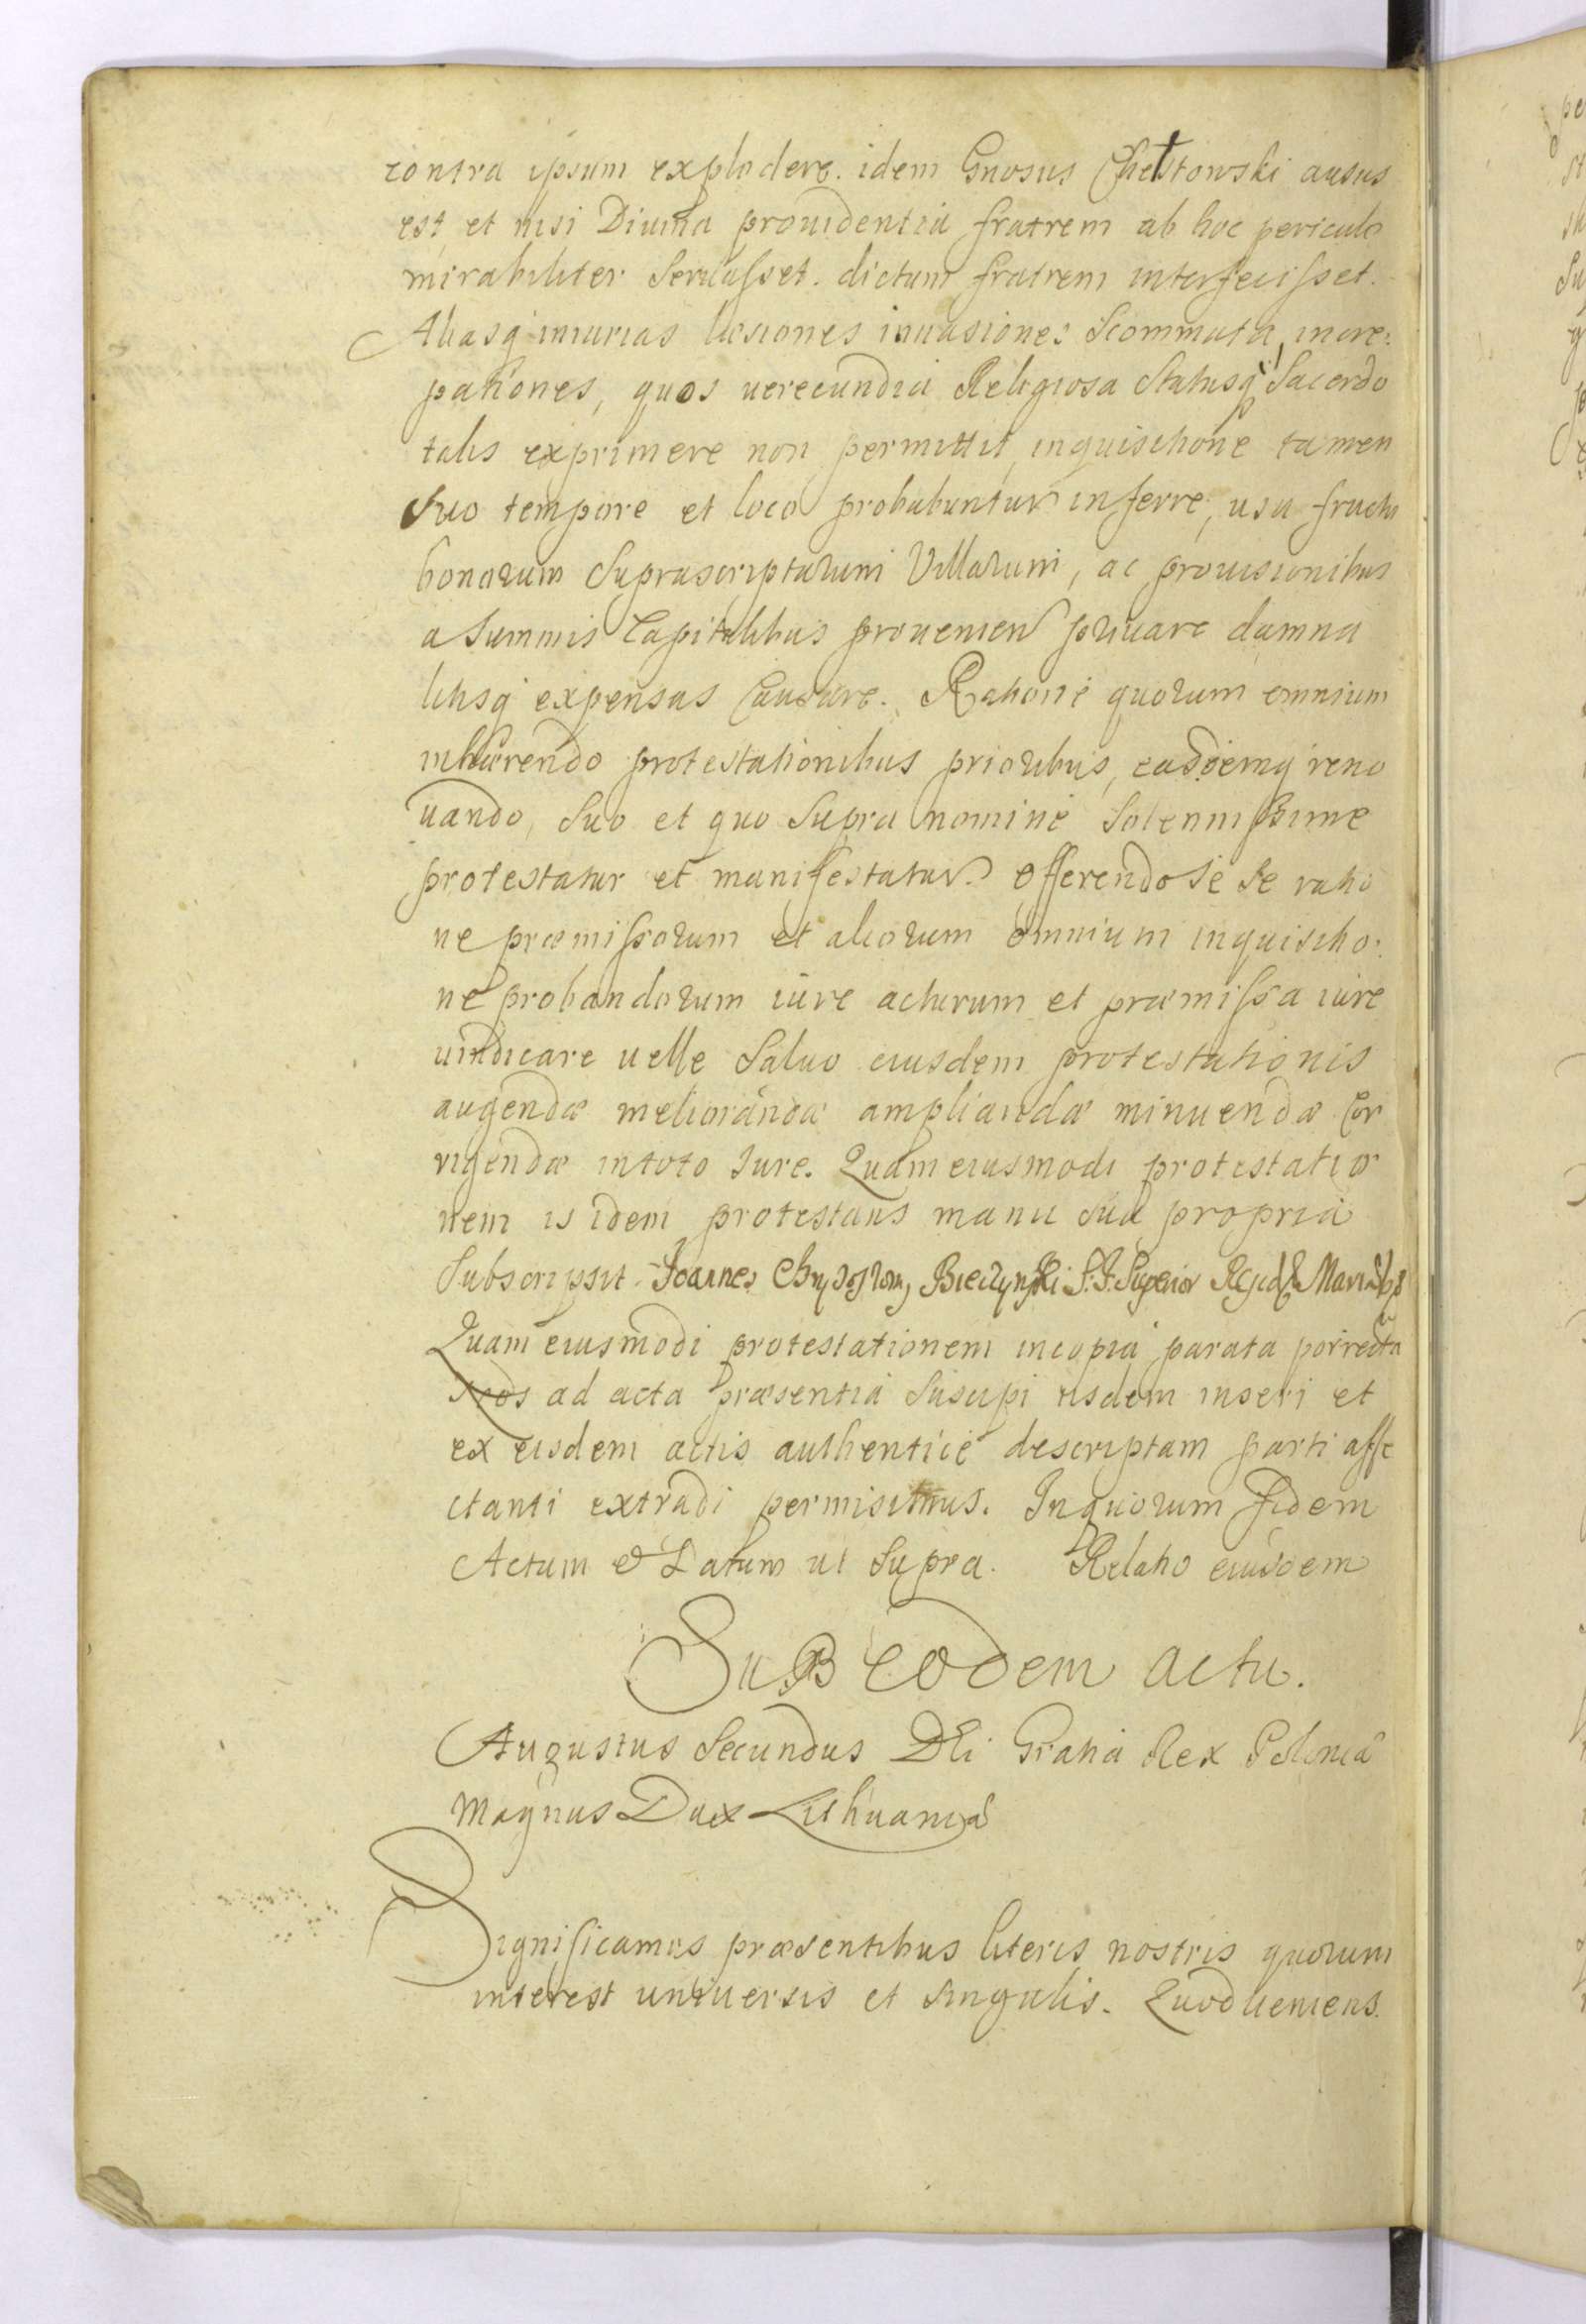 contra ipsum explodere. idem Gnosus Chełstowski ausus
est, et nisi Diuina prouidentia fratrem ab hoc periculo
mirabiliter seruasset. dictum fratrem interfecisset.
Aliasq iniurias læsiones inuasiones scommata, incre:
pationes, quos uerecundia Religiosa Statusq Sacerdo
talis exprimere non permittit, inquisitione tamen
suo tempore et loco probabuntur inferre, usu fructu
bonorum Suprascriptarum Villarum, ac prouisionibus
a Summis Capitalibus prouenien priuare damna
litisq expensas Causare. Ratione quorum omnium
inhærendo protestationibus prioribus, easdemq reno
uando, Suo et quo Supra nomine Solennissime
protestatur et manifestatur. Offerendo se se ratio
ne præmissorum et aliorum omnium inquisitio:
ne probandorum iure acturum et præmissa iure
uindicare uelle Saluo eiusdem protestationis
augendæ meliorandæ ampliandæ minuendæ Cor
rigendæ in toto Iure. Quam eiusmodi protestatio
nem is idem protestans manu sua propria
Subscripsit. Joannes Chrysostom, S. J. Superior
Quam eiusmodi protestationem in copia parata porrecta
Nos ad acta præsentia Suscipi iisdem inseri et
ex eisdem actis authentice descriptam parti affe
ctanti extradi permisimus. In quorum fidem
Actum & Datum ut Supra. Relatio eiusdem
SuB eodem actu.
Augustus Secundus DEi Gratia Rex Poloniæ
Magnus Dux Lithuaniæ
Significamus præsentibus literis nostris quorum
interest uniuersis et singulis. Quod ueniens